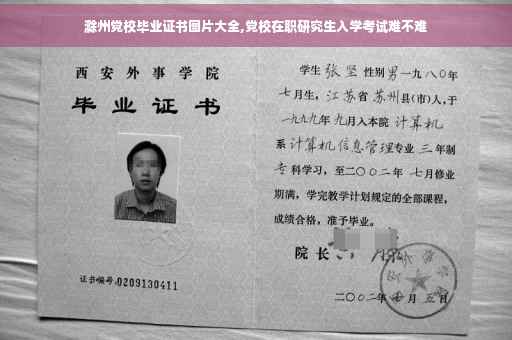 滁州党校毕业证书图片大全,党校在职研究生入学考试难不难
西安外事学院
毕业证书
证书编号:0209130411
学生 张坚 性别 男 一九八〇年
七月生, 江苏省 苏州县(市)人, 于
一九九九年 九月入本院 计算机
系 计算机信息管理专业 三 年制
专科学习, 至二〇〇二年 七月修业
期满, 学完教学计划规定的全部课程,
成绩合格, 准予毕业。
院长
二〇〇二年 七月 五日